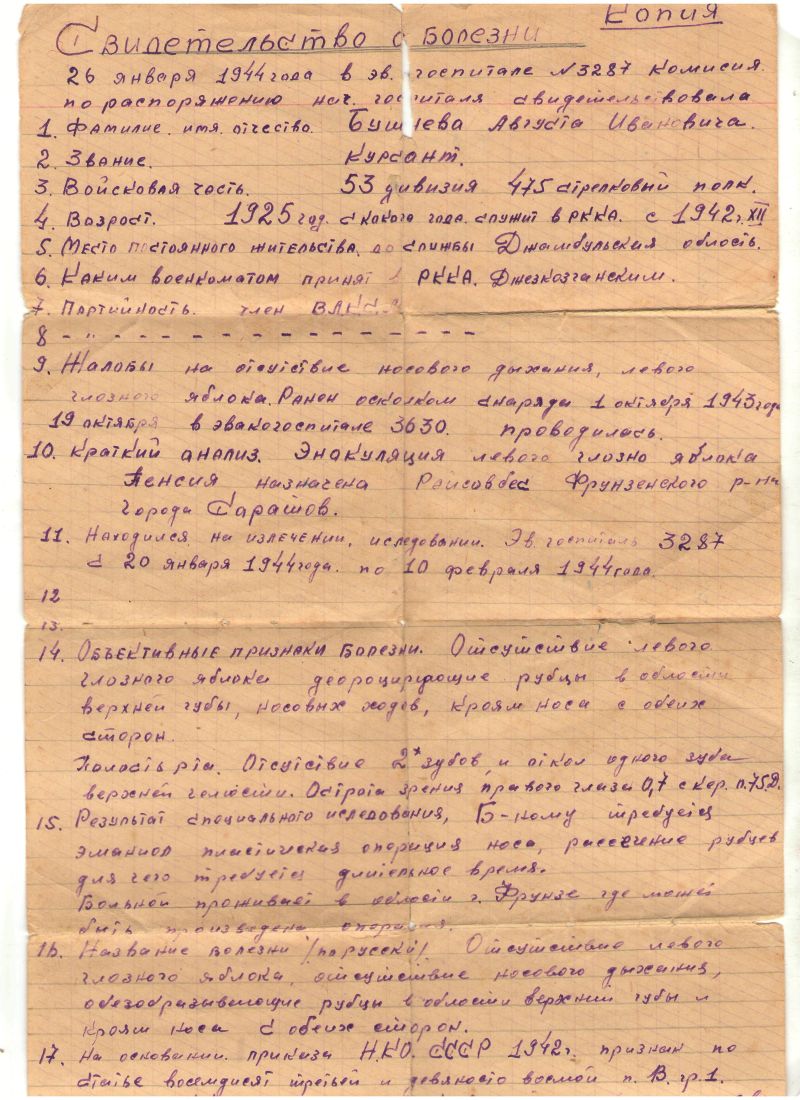 Копия
Свидетельство о болезни
26 января 1944 года в эв. госпитале N 3287 комисия
по распоряжению нач. госпиталя свидетельствовала
1. Фамилие. имя. отчество. Бушнева Августа Ивановича.
2. Звание. Курсант.
3. Войсковая часть. 53 дивизия 475 стрелковый полк.
4. Возраст. 1925 год. с какого года служит в РККА. с 1942 г. XII
5. Место постоянного жительства до службы Джамбульская область.
6. Каким военкоматом принят в РККА. Джезказганским.
7. Партийность. член ВЛКСМ
8 - " - - - - - - - - - - - - - -
9. Жалобы на отсутствие носового дыхания, левого
глозного яблока. Ранен осколком снаряда 1 октября 1943 года
19 октября в эвакогоспитале 3630. проводилась.
10. Краткий анализ. Энакуляция левого глозно яблока
Пенсия назначена Райсовбес Фрунзенского р-на
города Саратов.
11. Находился на излечении, иследовании. Эв. госпиталь 3287
с 20 января 1944 года. по 10 февраля 1944 года.
12
13.
14. Объективные признаки болезни. Отсутствие левого
глозного яблока деороцирующие рубцы в области
верхней губы, носовых ходов, кроям носа с обеих
сторон.
Полость рта. Отсутствие 2х зубов, и откол одного зуба
верхней челюсти. Острота зрения правого глаза 0,7 с кор. п. 75 Д.
15. Результат специального иследования, Б-ному требуется
эманиол пластическая опорация носа, рассечение рубцов
для чего требуется длительное время.
Больной проживает в области г. Фрунзе где может
быть произведена опорация.
16. Название болезни /по русски/ Отсутствие левого
глозного яблока, отсутствие носового дыхания,
обезобразывающие рубцы в области верхнии губы и
кроям носа с обеих сторон.
17. На основании приказа Н.К.О. СССР 1942 г. признан по
статье восемдисят третьей и девяносто восмой п. В. гр. 1.